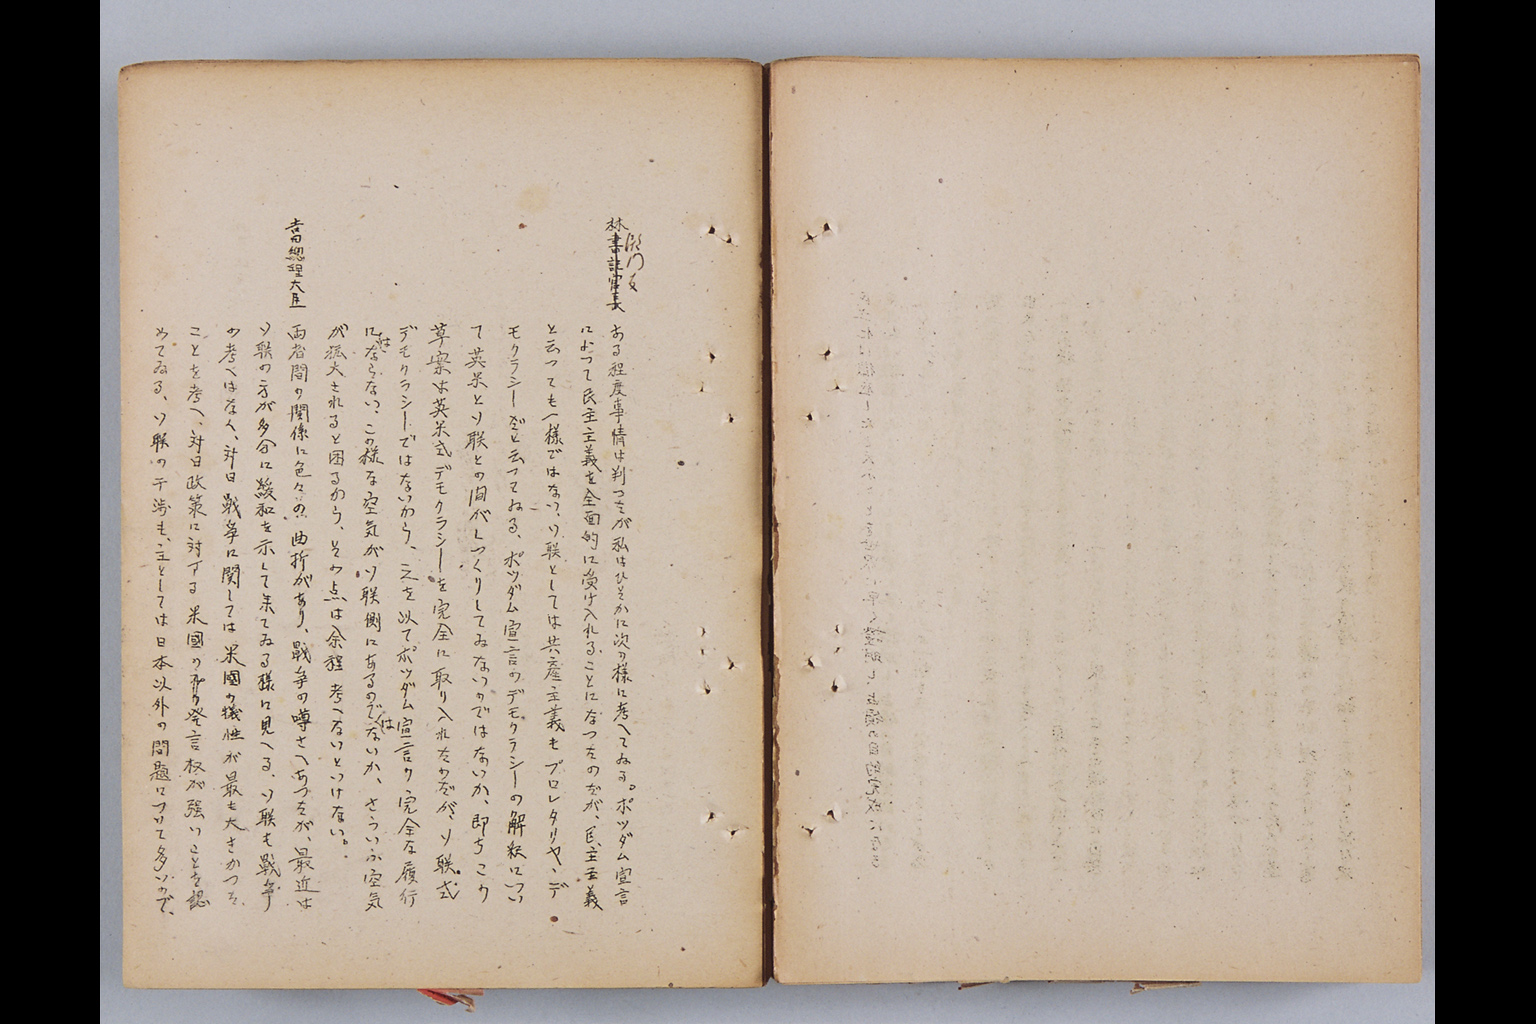 林書記官長
ある程度事情は判つたが私はひそかに次の様に考へてゐる。ポツダム宣言
によつて民主主義を全面的に受け入れることになつたのだが、民主主義
と云つても一様ではない、ソ聯としては共産主義もプロレタリヤ、デ
モクラシーだと云つてゐる、ポツダム宣言のデモクラシーの解釈につい
て英米とソ聯との間がしつくりしてゐないのではないか、即ちこの
草案は英米式デモクラシーを完全に取り入れたのだが、ソ聯式
デモクラシーではないから、之を以てポツダム宣言の完全な履行
にはならない、この様な空気がソ聯側にあるのではないか、さういふ空気
が拡大されると困るから、その点は余程考へないといけない。
吉田総理大臣
両者間の関係に色々の曲折があり、戦争の噂さへあつたが、最近は
ソ聯の方が多分に緩和を示して来てゐる様に見へる、ソ聯も戦争
の考へはなく、対日戦争に関しては米國の犠牲が最も大きかつた
ことを考へ、対日政策に対する米國の発言权が強いことを認
めてゐる、ソ聯の干渉も、主としては日本以外の問題について多いので、